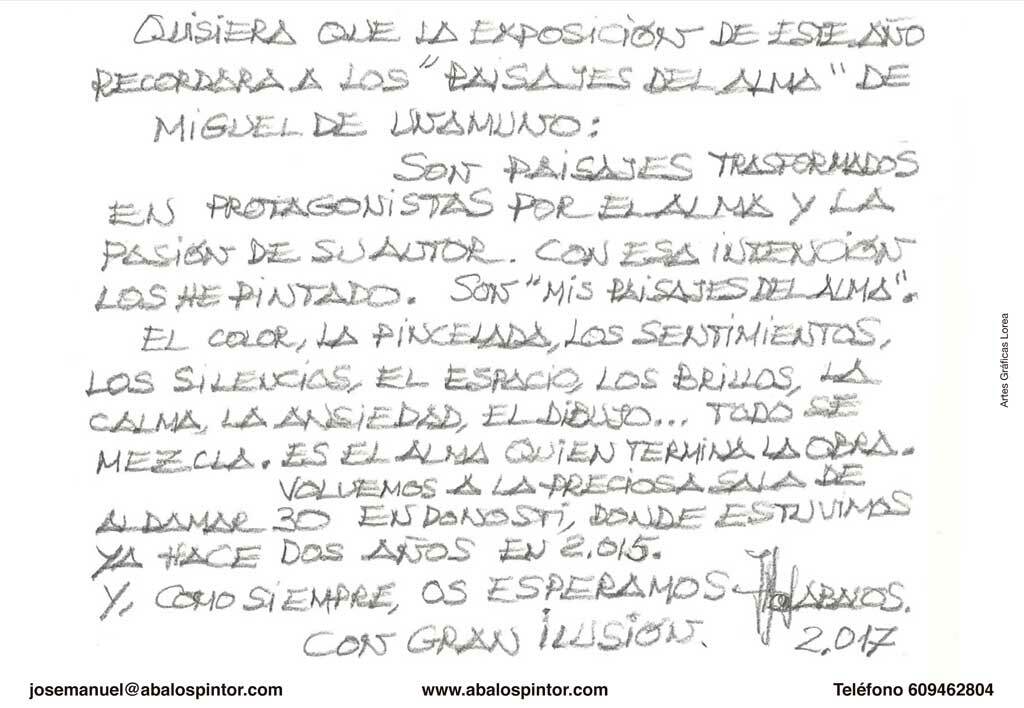 QUISIERA QUE LA EXPOSICIÓN DE ESTE AÑO
RECORDARA A LOS "PAISAJES DEL ALMA" DE
MIGUEL DE UNAMUNO:
SON PAISAJES TRASFORMADOS
EN PROTAGONISTAS POR EL ALMA Y LA
PASIÓN DE SU AUTOR. CON ESA INTENCIÓN
LOS HE PINTADO. SON "MIS PAISAJES DEL ALMA".
EL COLOR, LA PINCELADA, LOS SENTIMIENTOS,
LOS SILENCIOS, EL ESPACIO, LOS BRILLOS, LA
CALMA, LA ANSIEDAD, EL DIBUJO... TODO SE
MEZCLA. ES EL ALMA QUIEN TERMINA LA OBRA.
VOLVEMOS A LA PRECIOSA SALA DE
ALDAMAR 30 EN DONOSTI, DONDE ESTUVIMOS
YA HACE DOS AÑOS EN 2.015.
Y, COMO SIEMPRE, OS ESPERAMOS
CON GRAN ILUSIÓN.
ABALOS.
2.017
Artes Gráficas Lorea
josemanuel@abalospintor.com www.abalospintor.com Teléfono 609462804